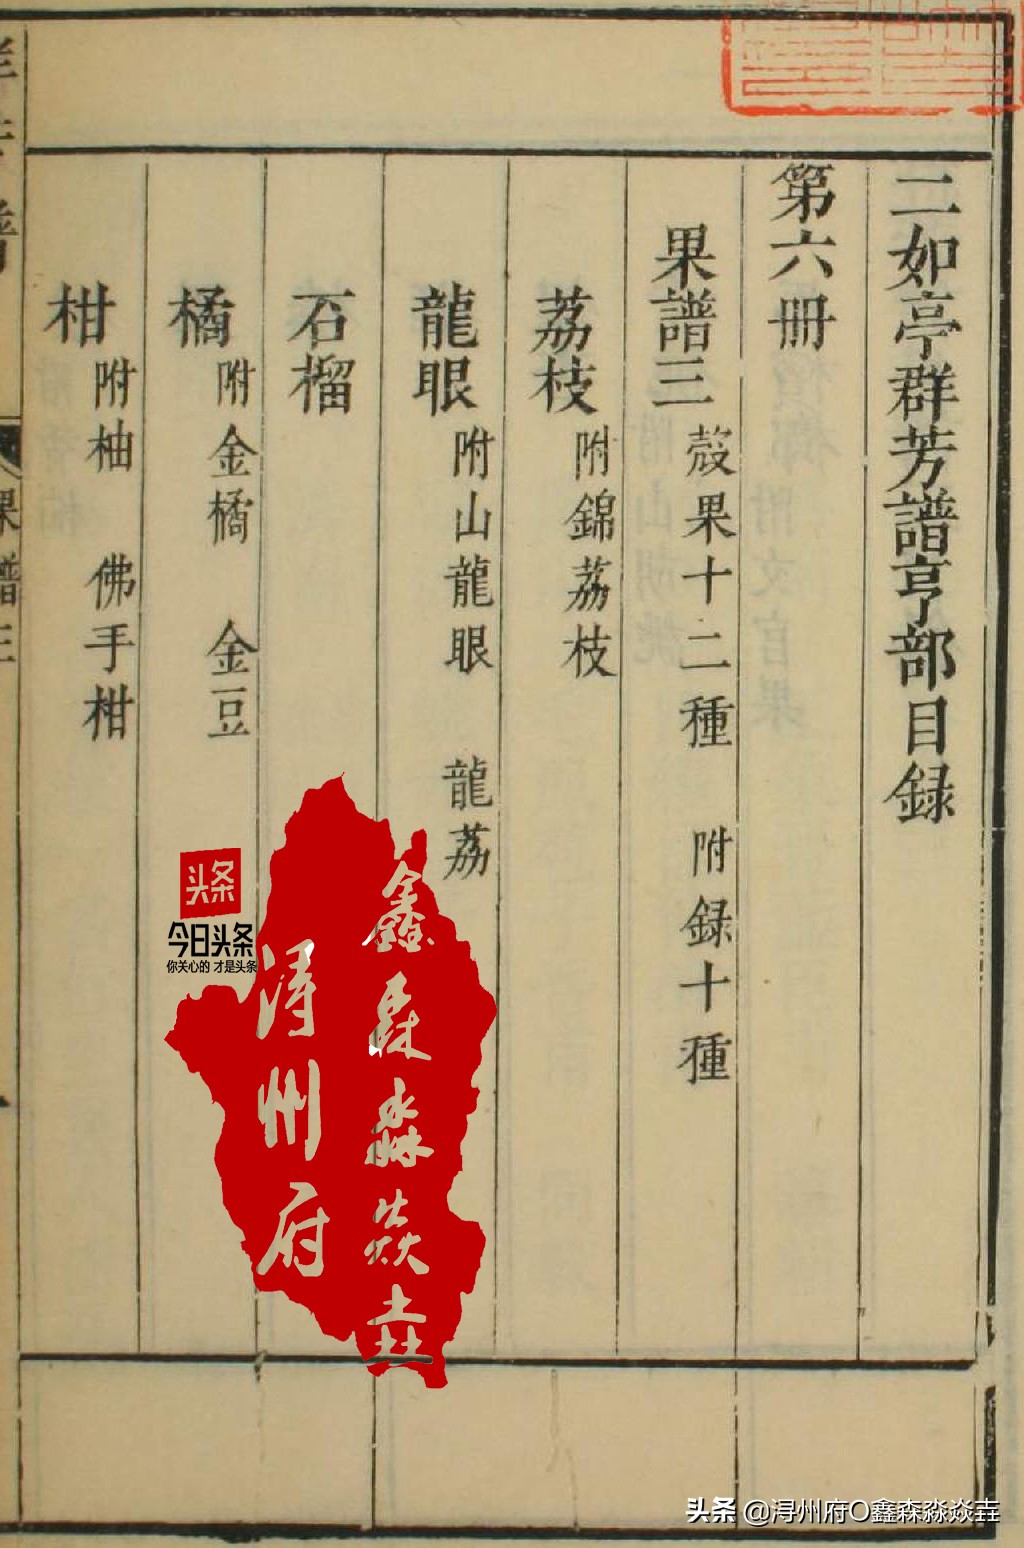 二如亭群芳譜亨部目録
第六冊
果譜三 殼果十二種 附録十種
荔枝 附錦荔枝
龍眼 附山龍眼 龍荔
石榴
橘 附金橘 金豆
柑 附柚 佛手柑
果譜三
头条
今日头条
你关心的 才是头条
鑫森淼焱垚
浔州府
头条 @浔州府O鑫森淼焱垚